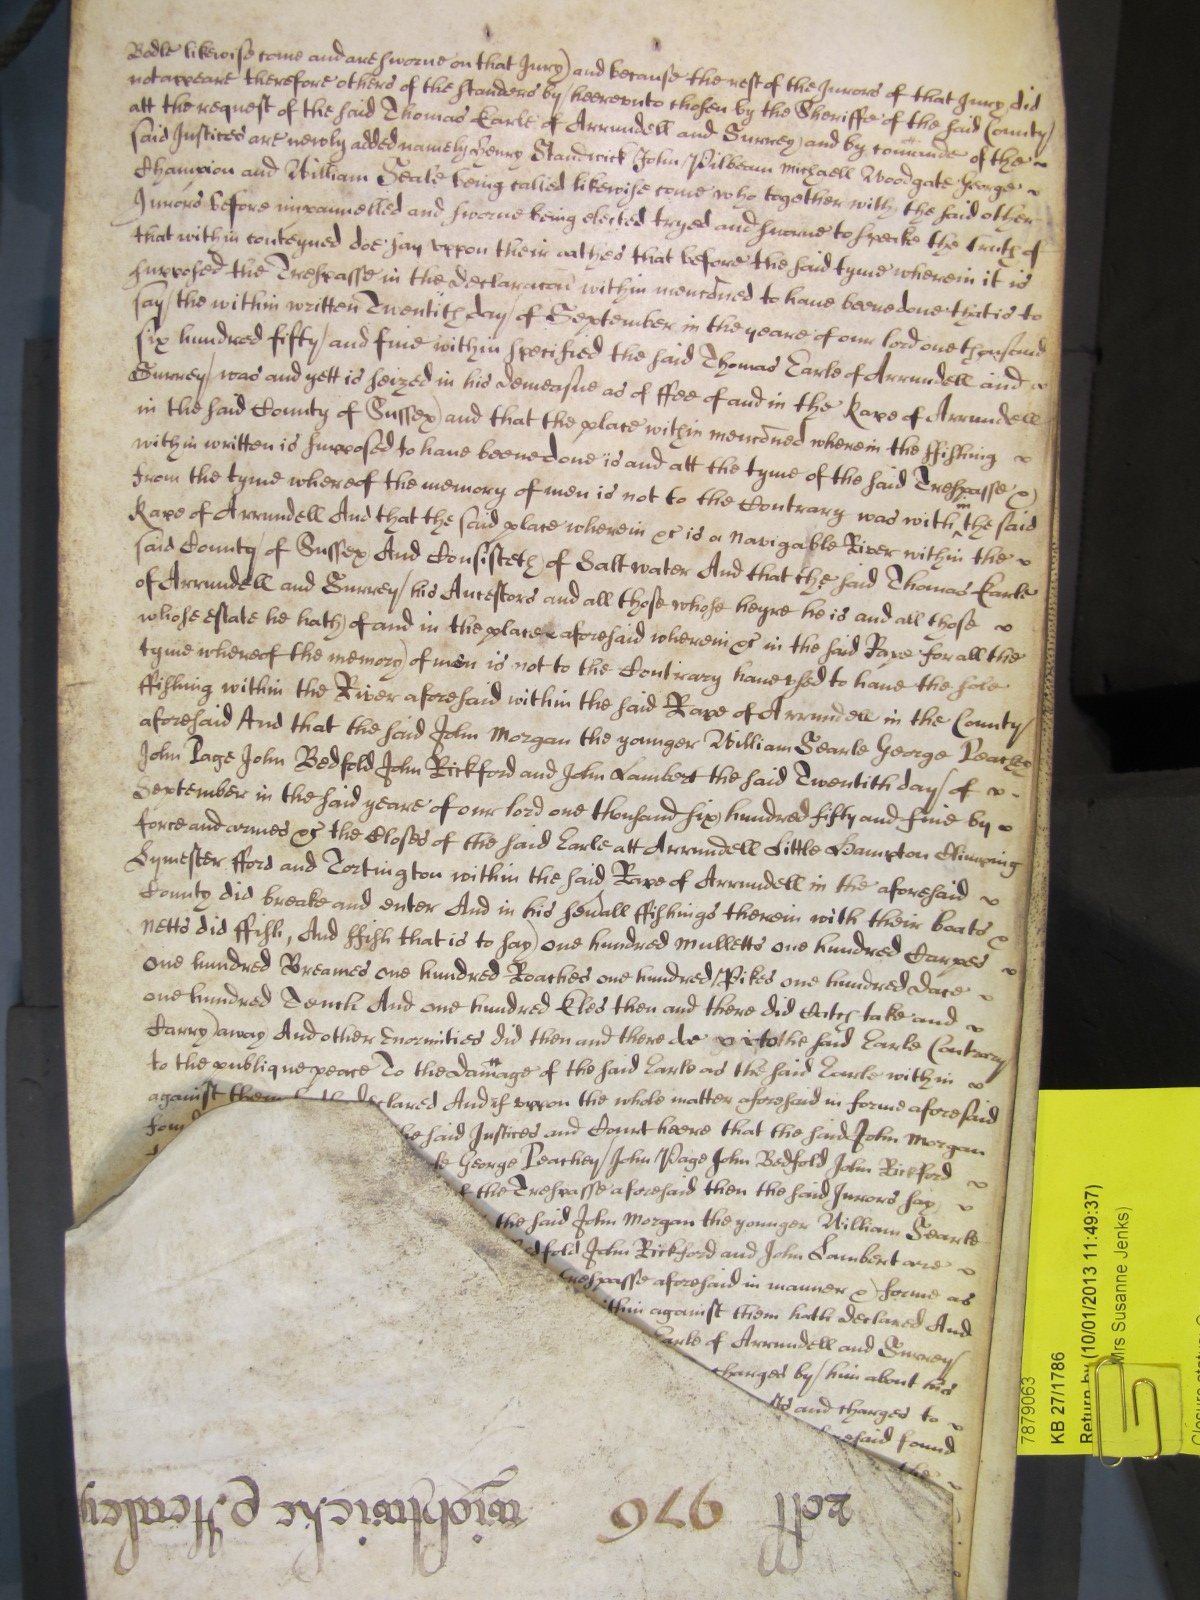 Bodle likewise come and are sworne on that Jury) and because the rest of the Jurors of that Jury did
not appeare therefore others of the standers by heereunto chosen by the Sheriffe of the said County
att the request of the said Thomas Earle of Arrundell and Surrey and by comande of the
said Justices are newly added namely Henry Standwick John Pilbeam Michaell Woodgate George
Champion and William Seale being called likewise come who together with the said other
Jurors before impannelled and sworne being elected tryed and sworne to speake the Truth of
that within conteyned doe say uppon their oathes that before the said tyme wherein it is
supposed the Trespasse in the declaracon within menconed to have beene done that is to
say the within written Twentith day of September in the yeare of our lord one thousand
six hundred fifty and five within specified the said Thomas Earle of Arrundell and
Surrey was and yett is seized in his demeasne as of ffee of and in the Rape of Arrundell
in the said County of Sussex and that the place within menconed wherein the ffishing
within written is supposed to have beene done is and att the tyme of the said Trespasse &
from the tyme whereof the memory of men is not to the Contrary was with in the said
Rape of Arrundell And that the said place wherein &c is a Navigable River within the
said County of Sussex And Consisteth of Salt water And that the said Thomas Earle
of Arrundell and Surrey his Ancestors and all those whose heyre he is and all those
whose estate he hath of and in the place aforesaid wherein &c in the said Rape for all the
tyme whereof the memory of men is not to the Contrary have used to have the sole
ffishing within the River aforesaid within the said Rape of Arrundell in the County
aforesaid And that the said John Morgan the younger William Searle George Peachey
John Page John Bedfold John Rickford and John Lambert the said Twentith day of
September in the said yeare of our lord one thousand six hundred fifty and five by
force and armes &c the Closes of the said Earle att Arrundell Little Hampton Climping
Lymester fford and Tortington within the said Rape of Arrundell in the aforesaid
County did breake and enter And in his severall ffishings therein with their boats &
Netts did ffish, And ffish that is to say one hundred Mulletts one hundred Carpes
one hundred Breames one hundred Roaches one hundred Pikes one hundred Dace
one hundred Tench And one hundred Eles then and there did Catch take and
Carry away And other Enormities did then and there doe to the said Earle Contrary
to the publique peace To the damage of the said Earle as the said Earle within
against them hath declared And if uppon the whole matter aforesaid in forme aforesaid
foun he said Justices and Court heere that the said John Morgan
le George Peachey John Page John Bedfold John Rickford
the Trespasse aforesaid then the said Jurors say
the said John Morgan the younger William Searle
dfold John Rickford and John Lambert are
trespasse aforesaid in manner & forme as
ithin against them hath declared And
Earle of Arrundell and Surrey
charges by him about his
sts and charges to
foresaid found
the
roll 976
Wightwicke & Henley
7879063
KB 27/1786
Return by (10/01/2013 11:49:37)
Mrs Susanne Jenks)